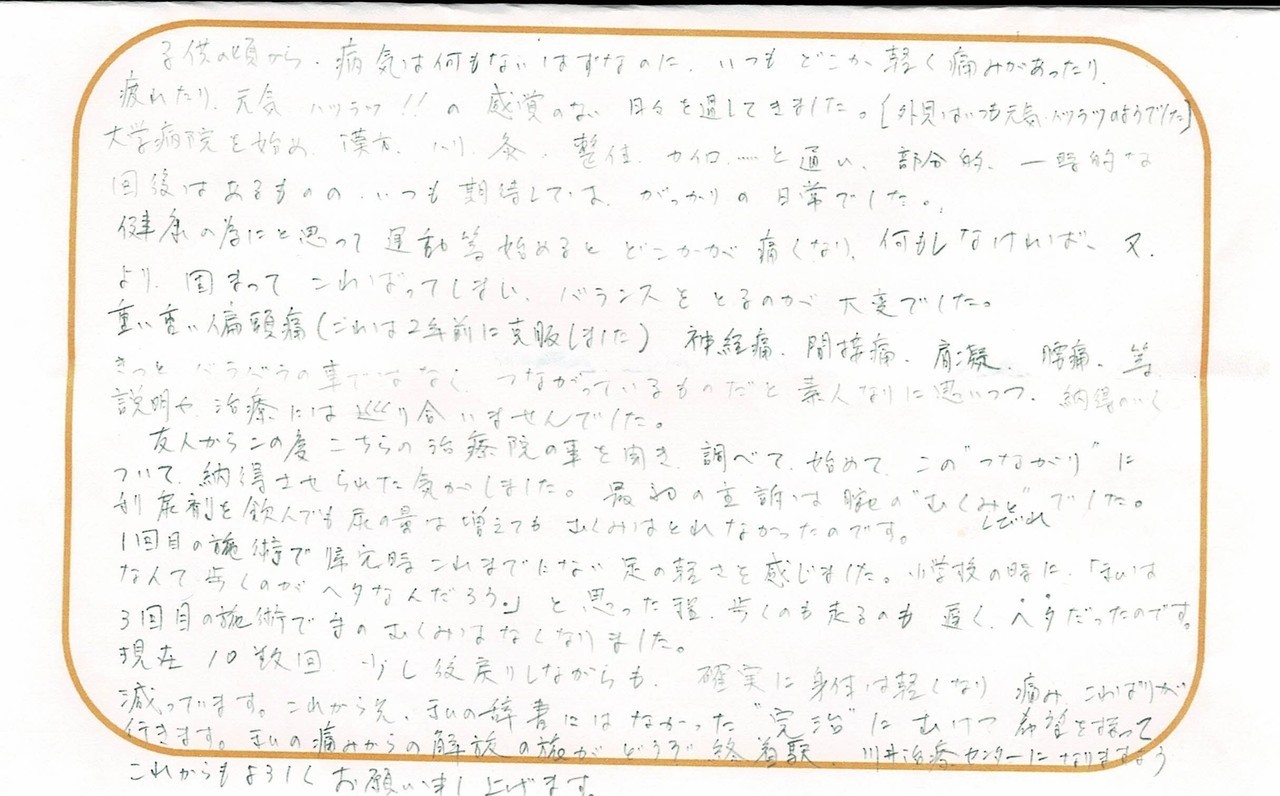 子供の頃から、病気は何もないはずなのに、いつも どこか 軽く痛みがあったり、
疲れたり、元気 ハツラツ!! の 感覚のない 日々を過してきました。〔外見はいつも元気ハツラツのようでした〕
大学病院を始め、漢方、ハリ、灸、整体、カイロ……と通い、部分的、一時的な
回復はあるものの、いつも期待しては、がっかりの日常でした。
健康の為にと思って 運動等始めると どこかが 痛くなり、何もしなければ、又、
より、固まって こわばってしまい、バランスを とるのが 大変でした。
重い重い偏頭痛(これは2年前に克服しました) 神経痛、関接痛、肩凝、腰痛、等、
きっと バラバラの事ではなく、つながっているものだと 素人なりに思いつつ、納得のいく
説明や、治療には 巡り合いませんでした。
友人からこの度 こちらの治療院の事を聞き、調べて、始めて、この"つながり"に
ついて、納得させられた気がしました。最初の主訴は腕の"むくみと"でした。
しびれ
利尿剤を飲んでも尿の量は増えても むくみはとれなかったのです。
1回目の施術で 帰宅時 これまでにない 足の軽さを感じました。小学校の時に、「私は
なんて歩くのが ヘタなんだろう。」と思った程、歩くのも走るのも 遅く、ヘタだったのです。
3回目の施術で 手の むくみはなくなりました。
現在 10数回、少し後戻りしながらも、確実に 身体は軽くなり 痛み、こわばりが
減っています。これから先、私の辞書にはなかった"完治"に むけて 希望を持って
行きます。私の痛みからの解放の旅が どうぞ 終着駅、川井治療センターになりますよう
これからもよろしく お願い申し上げます。